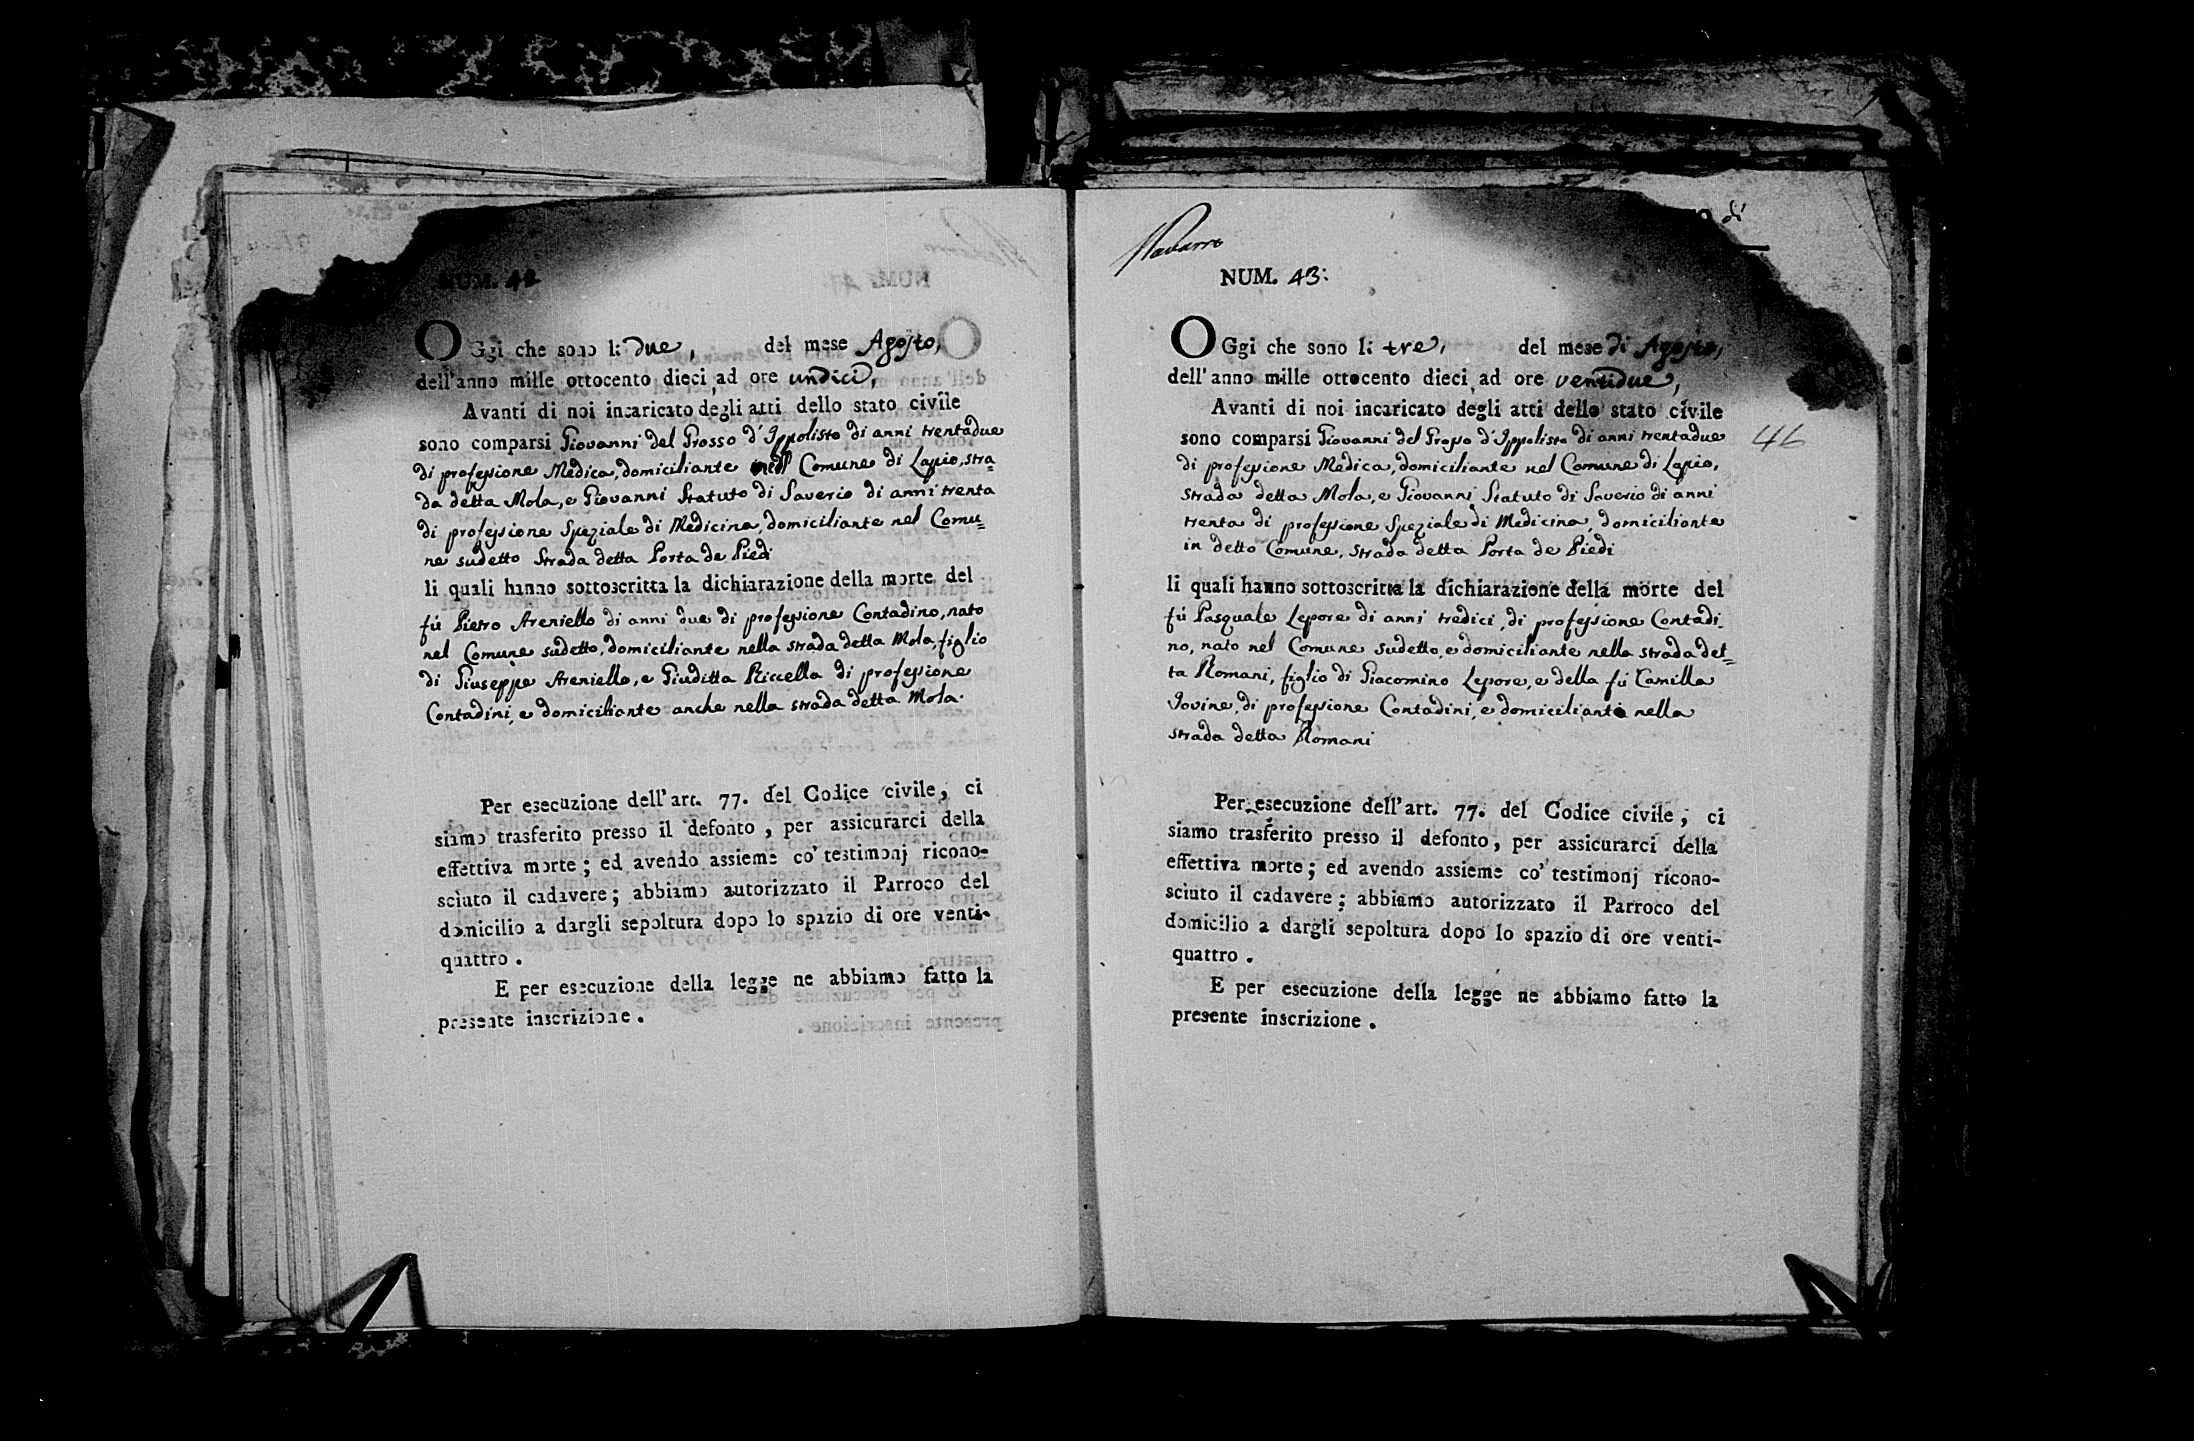 NUM. 42
OGgi che sono li due, del mese Agosto,
dell'anno mille ottocento dieci, ad ore undici,
Avanti di noi incaricato degli atti dello stato civile
sono comparsi Giovanni del Grosso d'Ippolisto di anni trentadue
di professione Medica, domiciliante nel Comune di Lapio, stra=
da detta Mola, e Giovanni Statuto di Saverio di anni trenta
di professione Speziale di Medicina, domiciliante nel Comu=
ne sudetto Strada detta Porta de Piedi
li quali hanno sottoscritta la dichiarazione della morte del
fù Pietro Areniello di anni due di professione Contadino, nato
nel Comune sudetto, domiciliante nella strada detta Mola, figlio
di Giuseppe Areniello, e Giuditta Riccella di professione
Contadini, e domiciliante anche nella strada detta Mola.
Per esecuzione dell'art. 77. del Codice civile, ci
siamo trasferito presso il defonto, per assicurarci della
effettiva morte; ed avendo assieme co' testimonj ricono-
sciuto il cadavere; abbiamo autorizzato il Parroco del
domicilio a dargli sepoltura dopo lo spazio di ore venti-
quattro.
E per esecuzione della legge ne abbiamo fatto la
presente inscrizione.
di
Navarro
NUM. 43:
OGgi che sono li tre, del mese di Agosto,
dell'anno mille ottocento dieci, ad ore ventidue,
Avanti di noi incaricato degli atti dello stato civile
sono comparsi Giovanni del Grosso d'Ippolisto di anni trentadue
di professione Medica, domiciliante nel Comune di Lapio,
strada detta Mola, e Giovanni Statuto di Saverio di anni
trenta di professione Speziale di Medicina, domiciliante
in detto Comune, strada detta Porta de Piedi
46
li quali hanno sottoscritta la dichiarazione della morte del
fù Pasquale Lepore di anni tredici, di professione Contadi-
no, nato nel Comune sudetto, e domiciliante nella strada det=
ta Romani, figlio di Giacomino Lepore, e della fù Camilla
Iovine, di professione Contadini, e domicilianti nella
strada detta Romani
Per esecuzione dell'art. 77. del Codice civile, ci
siamo trasferito presso il defonto, per assicurarci della
effettiva morte; ed avendo assieme co' testimonj ricono-
sciuto il cadavere; abbiamo autorizzato il Parroco del
domicilio a dargli sepoltura dopo lo spazio di ore venti-
quattro.
E per esecuzione della legge ne abbiamo fatto la
presente inscrizione.